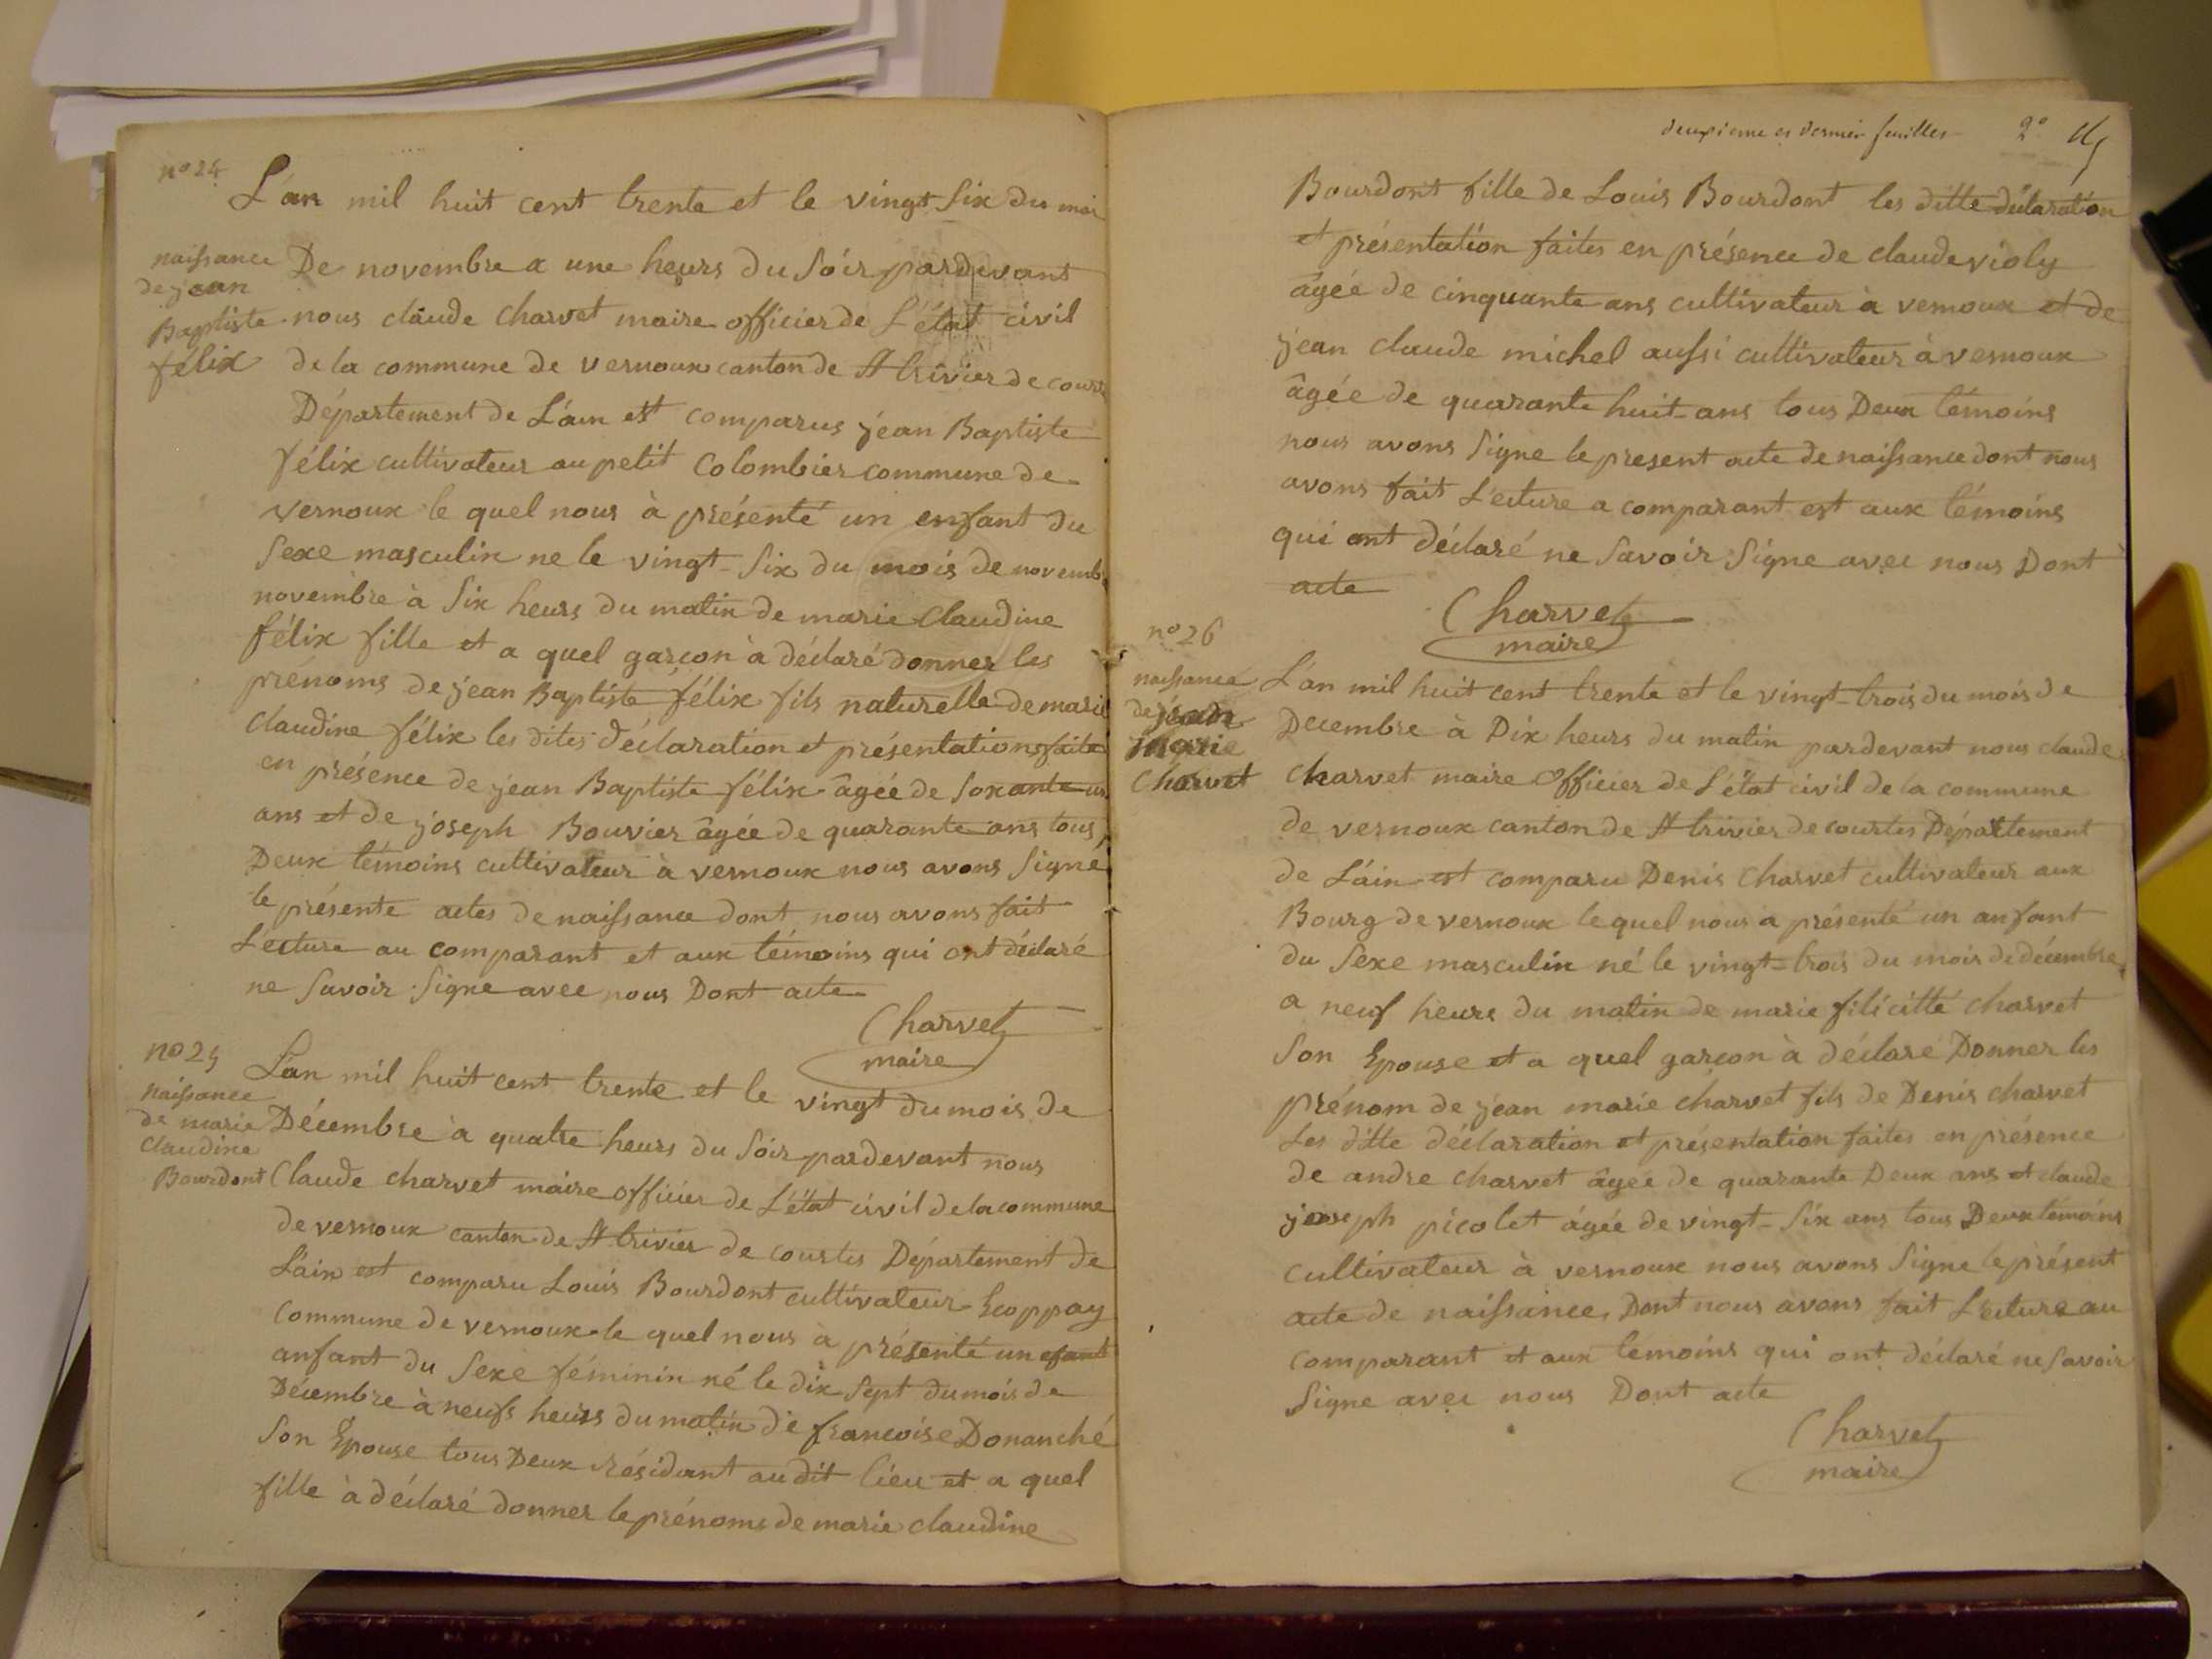 n° 24
L'an mil huit cent trente et le vingt Six du moi
naissance
de jean
Baptiste
félix
De novembre a une heurs du Soir pardevant
nous claude Charvet maire officier de L'état civil
de la commune de vernoux canton de St trivier de courte
Département de L'ain est comparus jean Baptiste
félix cultivateur au petit Colombier commune de
vernoux le quel nous à présenté un enfant du
Sexe masculin ne le vingt-Six du mois de novemb
novembre à Six heurs du matin de marie Claudine
félix fille et a quel garçon à déclaré donner les
prénoms de jean Baptiste félix fils naturelle de marie
claudine félix les dites déclaration et présentations faite
en présence de jean Baptiste félix âgée de soxante un
ans et de joseph Bouvier âgée de quarante ans tous
Deux témoins cultivateur à vernoux nous avons Signé
le présente actes de naissance dont nous avons fait
L'ecture au comparant et aux témoins qui ont déclaré
ne Savoir Signe avec nous Dont acte
Charvet
maire
n° 25
naissance
de marie
claudine
Bourdont
L'an mil huit cent trente et le vingt du mois de
Décembre à quatre heurs du Soir pardevant nous
Claude charvet maire officier de L'état civil de la commune
de vernoux canton de St trivier de courtes Département de
L'ain est comparu Louis Bourdont cultivateur Ecoppay
commune de vernoux le quel nous à présenté un efant
anfant du Sexe féminin né le dix Sept du mois de
Décembre à neufs heurs du matin de françoise Donanché
Son Epouse tous Deux résidant audit lieu et a quel
fille à déclaré donner le prénoms de marie claudine
deuxieme et dernier feuilles 2°
Bourdont fille de Louis Bourdont les ditte déclaration
et présentation faites en présence de claude violy
âgée de cinquante ans cultivateur à vernoux et de
jean claude michel aussi cultivateur à vernoux
âgée de quarante huit ans tous Deux témoins
nous avons Signe le present acte de naissance dont nous
avons fait L'ecture a comparant est aux témoins
qui ont déclaré ne Savoir Signe avec nous Dont
acte
Charvet
maire
n° 26
naissance
de jean
marie
Charvet
L'an mil huit cent trente et le vingt-trois du mois de
Decembre à Dix heurs du matin pardevant nous claude
Charvet maire Officier de L'état civil de la commune
de vernoux canton de St trivier de courtes Département
de L'ain est comparu Denis Charvet cultivateur aux
Bourg de vernoux le quel nous a présenté un anfant
du Sexe masculin né le vingt-trois du mois de décembre
a neuf heurs du matin de marie félicitté charvet
Son Epouse et a quel garçon à déclaré Donner les
prénom de jean marie charvet fils de Denis charvet
Les ditte déclaration et présentation faites en présence
de andre charvet âgée de quarante Deux ans et claude
joseph picolet âgée de vingt-Six ans tous Deux témoins
cultivateur à vernoux nous avons Signe le présent
acte de naissance, Dont nous avons fait L'ecture au
comparant et aux témoins qui ont déclaré ne Savoir
Signe avec nous Dont acte
Charvet
maire